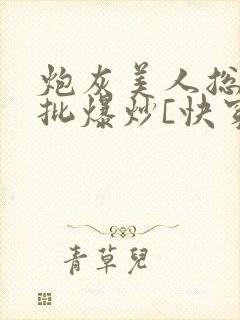 炮灰美人总
批爆炒[快穿
青草兒